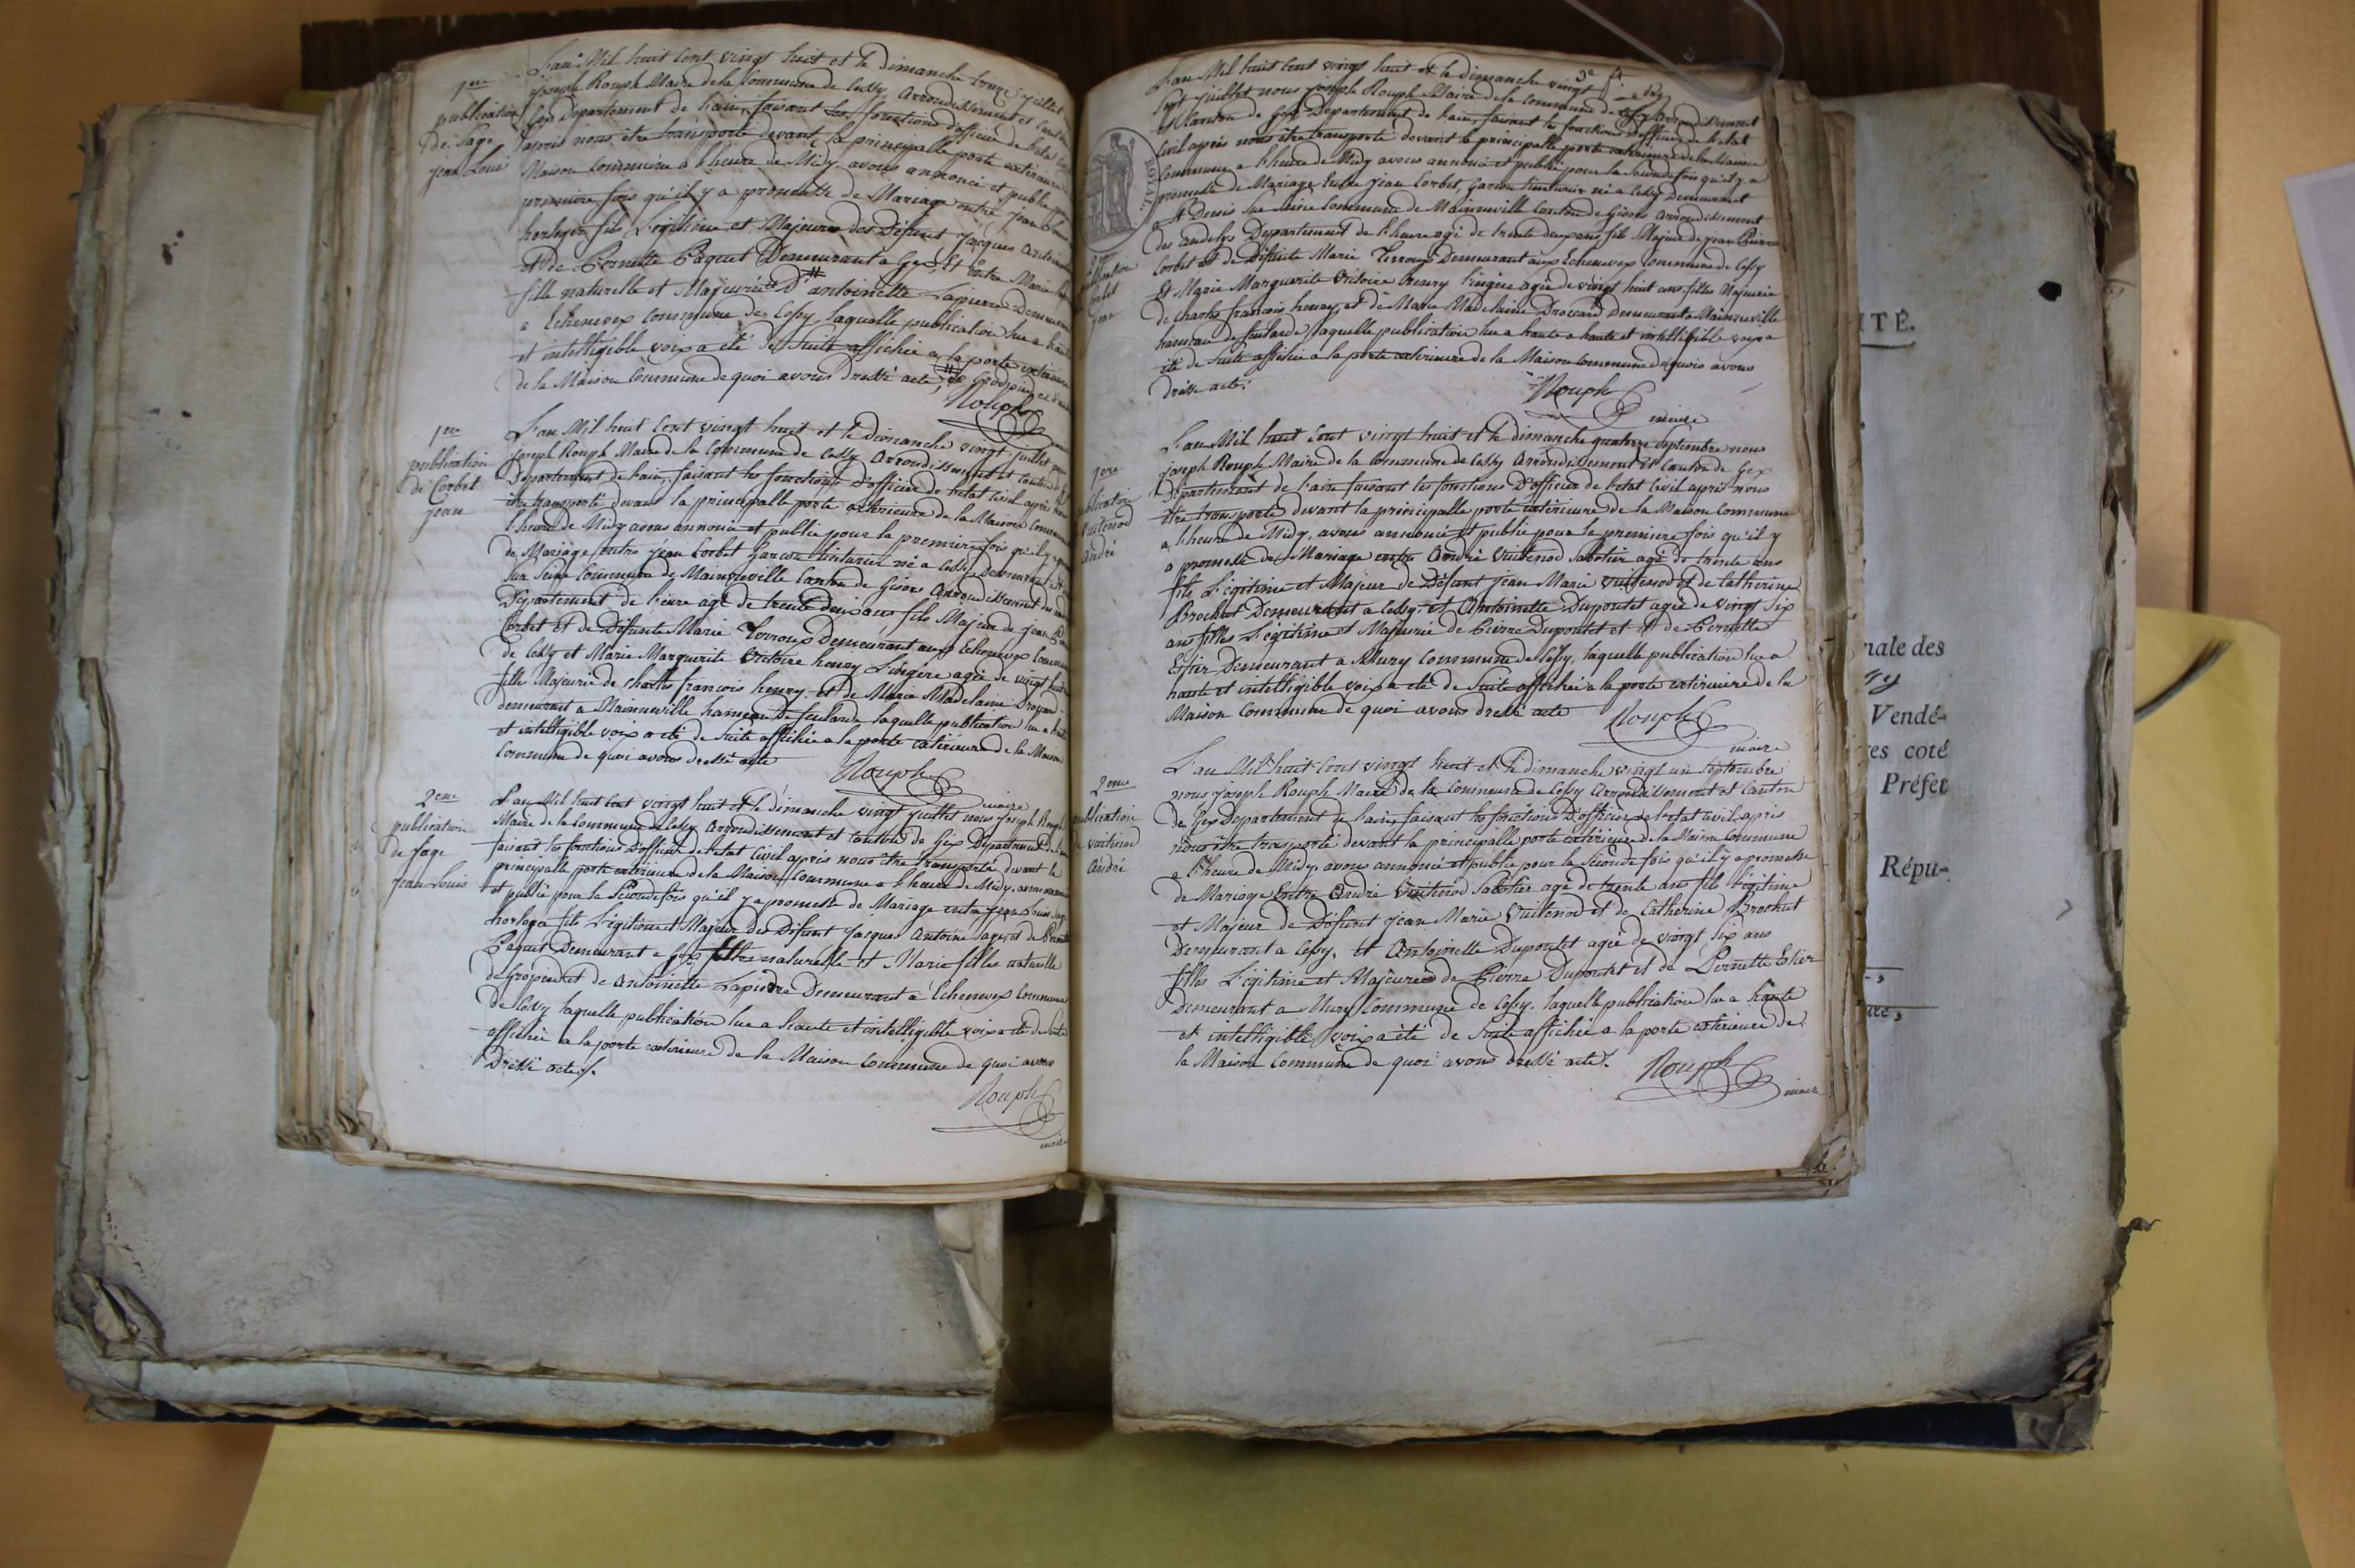 1ere
publication
De Sage
jean Louis
L'an Mil huit Cent vingt huit et le dimanche treize juillet
joseph Rouph Maire de la Commune de Cessy, arrondissement et Canton
Gex Departement de l'ain, faisant les fonctions d'officier de l'etat
apres nous être transporté devant la principalle porte exterieure
Maison Commune a l'heure de Midy, avons annoncé et publié
premiere fois qu'il y a promesse de Mariage entre jean Louis
horloger fils Légitime et Majeure des Défunt Jacques antoine
et de Pernette Paquet Demeurant a Gex, Et Entre Marie
fille naturelle et Majeurie # D'antoinette Lapierre Demeurant
a Echenevex Commune de Cessy, laquelle publication lue a haute
et intelligible voix a été de Suite affichée a la porte exterieure
de la Maison Commune de quoi avons Dressé acte, #
Rouph
1ere
publication
de Corbet
jean
L'an Mil huit Cent vingt huit et le Dimanche vingt juillet
joseph Rouph Maire de la Commune de Cessy arrondissement et Canton de
Departement de l'ain, faisant les fonctions d'officier de l'etat Civil après nous
être transporté devant la principalle porte exterieure de la Maison Commune
l'heure de Midy avons annoncé et publié pour la premiere fois qu'il y
de Mariage entre jean Corbet Garcon tinturier né a Cessy Demeurant
Sur Seine Commune de Mainneville Canton de Gisors arrondissement
Departement de l'eure agé de trente deux ans fils Majeur de jean
Corbet et de Défunte Marie Terroux Demeurant aux Echenevex Commune
de Cessy et Marie Marguerite Victoire henry Lingère agée de vingt huit
fille Majeurie de charles francois henry et de Marie Madelaine Droccard
demeurant a Mainneville hameau de foularde laquelle publication lue a haute
et intelligible voix a été de Suite affichée a la porte exterieure de la Maison
Commune de quoi avons dressé acte
Rouph
maire
2eme
publication
de Sage
jean Louis
L'an Mil huit Cent vingt huit et le dimanche vingt juillet nous joseph Rouph
Maire de la Commune de Cessy arrondissement et Canton de Gex Departement de l'ain
faisant les fonctions D'officier de l'etat Civil après nous être transporté devant la
principalle porte exterieure de la Maison Commune a l'heure de Midy avons annoncé
et publié pour la Seconde fois qu'il y a promesse de Mariage entre jean Louis Sage
horloger fils Légitime et Majeur des Défunt Jacques Antoine Sage et de Pernette
Paquet Demeurant a Gex fille naturelle et Marie fille naturelle
de Gropied et de Antoinette Lapierre Demeurant a Echenevex Commune
de Cessy laquelle publication lue a haute et intelligible voix a été de Suite
affichée a la porte exterieure de la Maison Commune de quoi avons
Dressé acte.
Rouph
maire
L'an Mil huit Cent vingt huit et le dimanche vingt
Sept juillet nous joseph Rouph Maire de la Commune de Cessy arrondissement
et Canton de Gex Departement de l'ain, faisant les fonctions d'officier de l'etat
Civil après nous être transporté devant la principalle porte exterieure de la Maison
Commune a l'heure de Midy avons annoncé et publié pour la Seconde fois qu'il y a
promesse de Mariage Entre jean Corbet, Garcon tinturier né a Cessy Demeurant
a St Denis Sur Seine Commune de Mainneville Canton de Gisors arrondissement
des andelys Departement de l'heure agé de trente deux ans fils Majeur de jean Pierre
Corbet et de Défunte Marie Terroux Demeurant aux Echenevex Commune de Cessy
Et Marie Marguerite Victoire henry lingère agée de vingt huit ans filles Majeurie
de charles francois henry et de Marie Madelaine Droccard Demeurant a Mainneville
hameau de foularde laquelle publication lue a haute a haute et intelligible voix a
été de Suite affichée a la porte exterieure de la Maison Commune de quoi avons
dressé acte.
ROYAL
2eme
publication
Corbet
jean
Rouph
maire
1ere
publication
vuitenod
André
L'an Mil huit Cent vingt huit et le dimanche quatorze Septembre nous
joseph Rouph Maire de la Commune de Cessy arrondissement et Canton de Gex
Departement de l'ain faisant les fonctions D'officier de l'etat Civil après nous
être transporté devant la principalle porte exterieure de la Maison Commune
a l'heure de Midy, avons annoncé et publié pour la premiere fois qu'il y
a promesse de Mariage entre André Vuitenod Sabotier agé de trente ans
fils Légitime et Majeur de Défunt jean Marie vuitenod et de Catherine
Brochut Demeurant a Cessy et Antoinette Dupontet agée de vingt Six
ans filles Légitime et Majeurie de Pierre Dupontet et de Pernette
Estier Demeurant a Mury Commune de Cessy, laquelle publication lue a
haute et intelligible voix a été de Suite affichée a la porte exterieure de la
Maison Commune de quoi avons dressé acte
Rouph
maire
2eme
publication
de vuitenod
André
L'an Mil huit Cent vingt huit et le dimanche vingt un Septembre
nous joseph Rouph Maire de la Commune de Cessy arrondissement et Canton
de Gex Departement de l'ain faisant les fonctions D'officier de l'etat Civil après
nous être transporté devant la principalle porte exterieure de la Maison Commune
a l'heure de Midy avons annoncé et publié pour la Seconde fois qu'il y a promesse
de Mariage Entre André Vuitenod Sabotier agé de trente ans fils Légitime
et Majeur de Défunt jean Marie Vuitenod et de Catherine Brochut
Demeurant a Cessy, et Antoinette Dupontet agée de vingt Six ans
filles Légitime et Majeure de Pierre Dupontet et de Pernette Estier
Demeurant a Mury Commune de Cessy. laquelle publication lue a haute
et intelligible voix a été de Suite affichée a la porte exterieure de
la Maison Commune de quoi avons dressé acte.
Rouph
maire
ITÉ.
nale des
Vendé-
res coté
Préfet
Répu-